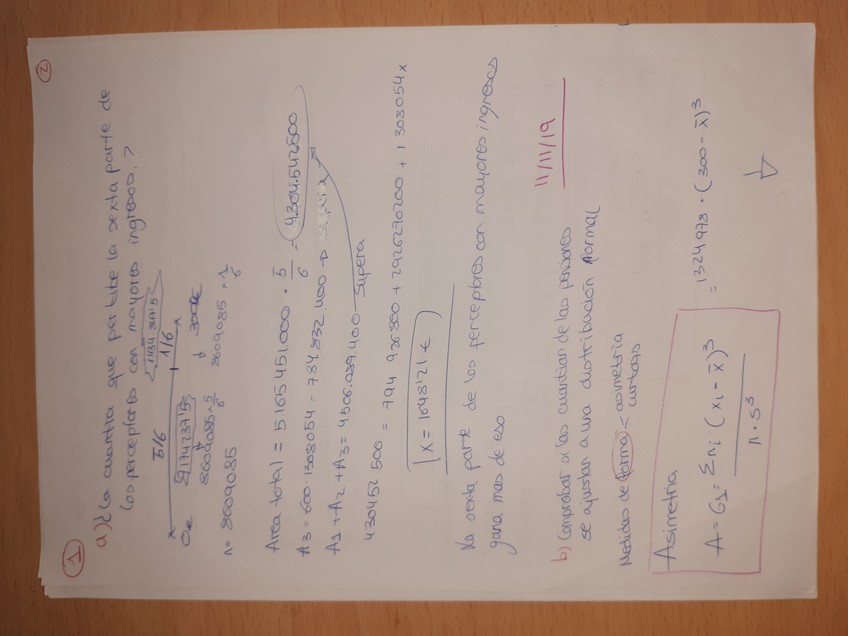 2
1
a) ¿La cuantía que percibe la sexta parte de
los perceptores con mayores ingresos?
1434 847'5
5/6 1/6
0€ 7174237'5 3000€
8609085 · 5/6 8609085 · 1/6
n = 8609085
Area total = 5.165.451.000 · 5/6 = 4304.542.500
A3 = 600 · 1308054 = 784.832.400 →
A1 + A2 + A3 = 4506.089.400 → Supera
430452 500 = 794 926800 + 2926290200 + 1308054x
x = 1648'21 €
La sexta parte de los perceptores con mayores ingresos
gana mas de eso
11/11/19
b) Comprobar si las cuantian de las pensiones
se ajustan a una distribución normal
Medidas de forma < asimetria
curtosis
Asimetria
A = G1 = Σni (xi - x̄)³ / n · s³
= 1324973 · (300 - x̄)³